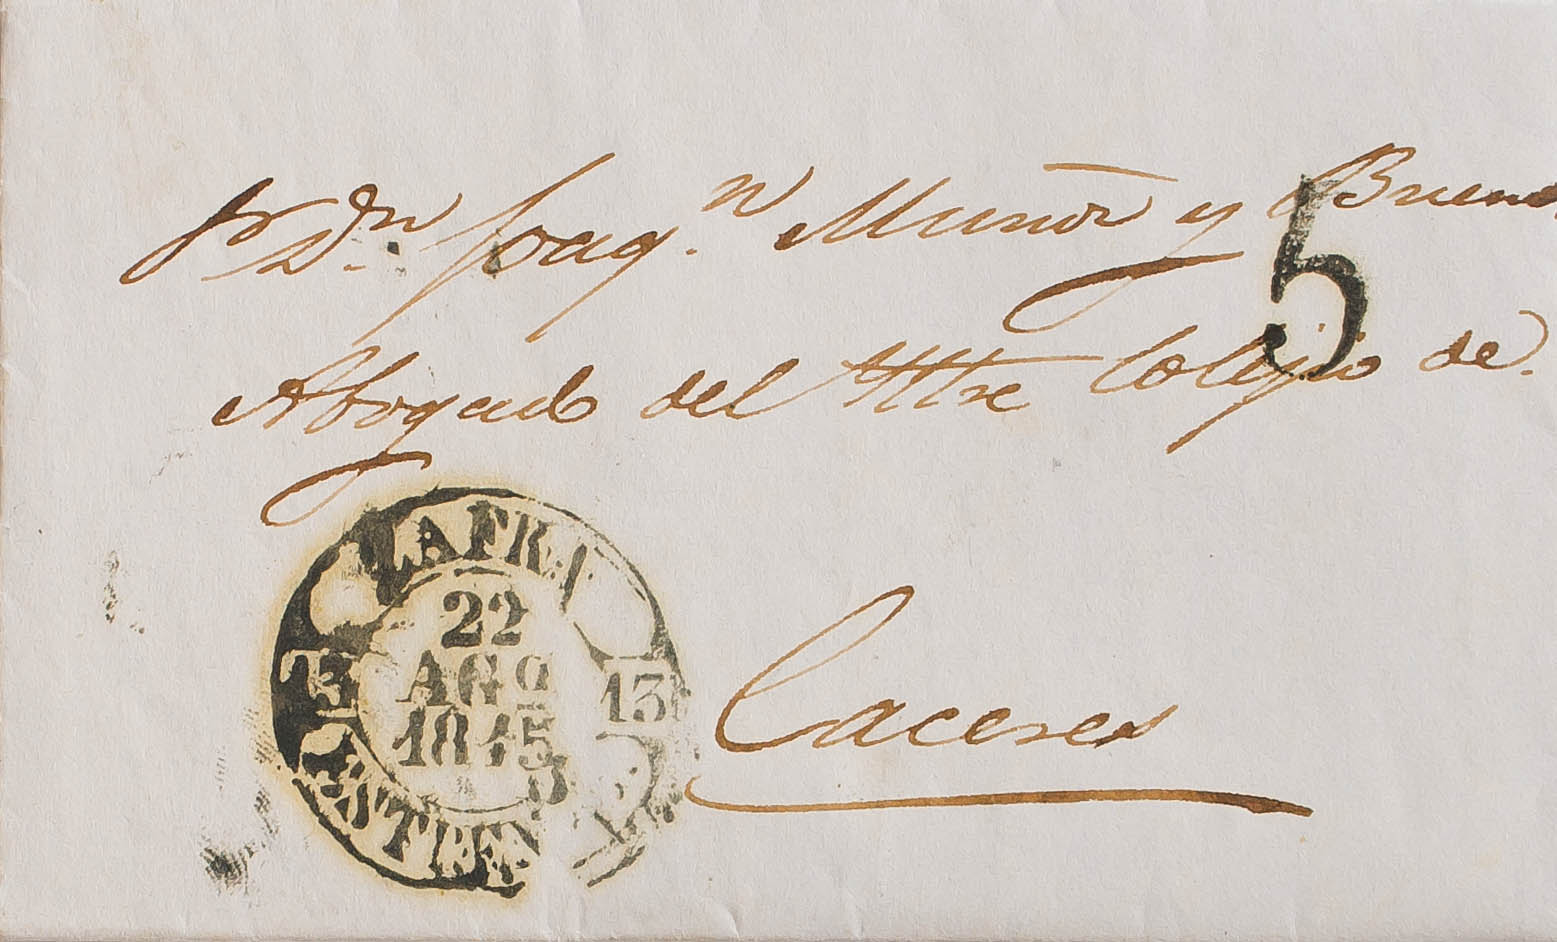 Sr. Dn. Joaqn. Muñoz y Bueno
5
Abogado del Iltre Colegio de
ZAFRA
22
AGO
1845
13
ESTREM
Caceres